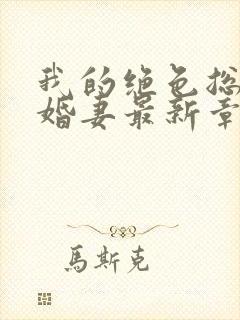 我的绝色总
婚妻最新章
馬斯克